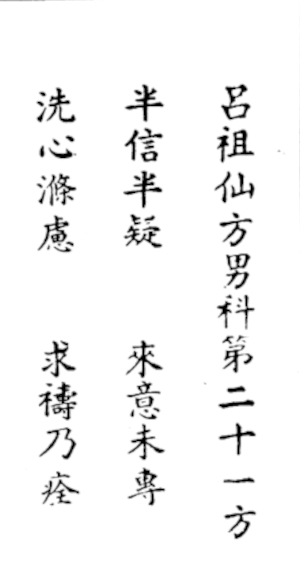 呂祖仙方男科第二十一方
半信半疑 來意未專
洗心滌慮 求禱乃痊